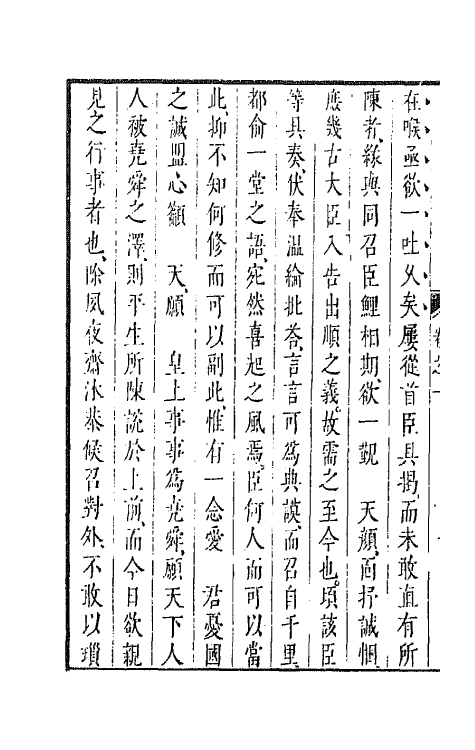 在喉亟欲一吐久矣屢從首臣具揭而未敢直有所
陳者緣與同召臣鯉相期欲一覲　天顏面抒誠悃
庶幾古大臣入告出順之義故需之至今也頃該臣
等具奏伏奉溫綸批荅言言可為典謨而召自千里
都俞一堂之語宛然喜起之風焉臣何人而可以當
此抑不知何修而可以副此惟有一念愛　君憂國
之誠盟心籲　天願　皇上事事為堯舜願天下人
人被堯舜之澤則平生所陳說於上前而今日欲親
見之行事者也除夙夜齋沐恭候召對外不敢以瑣
卷之一